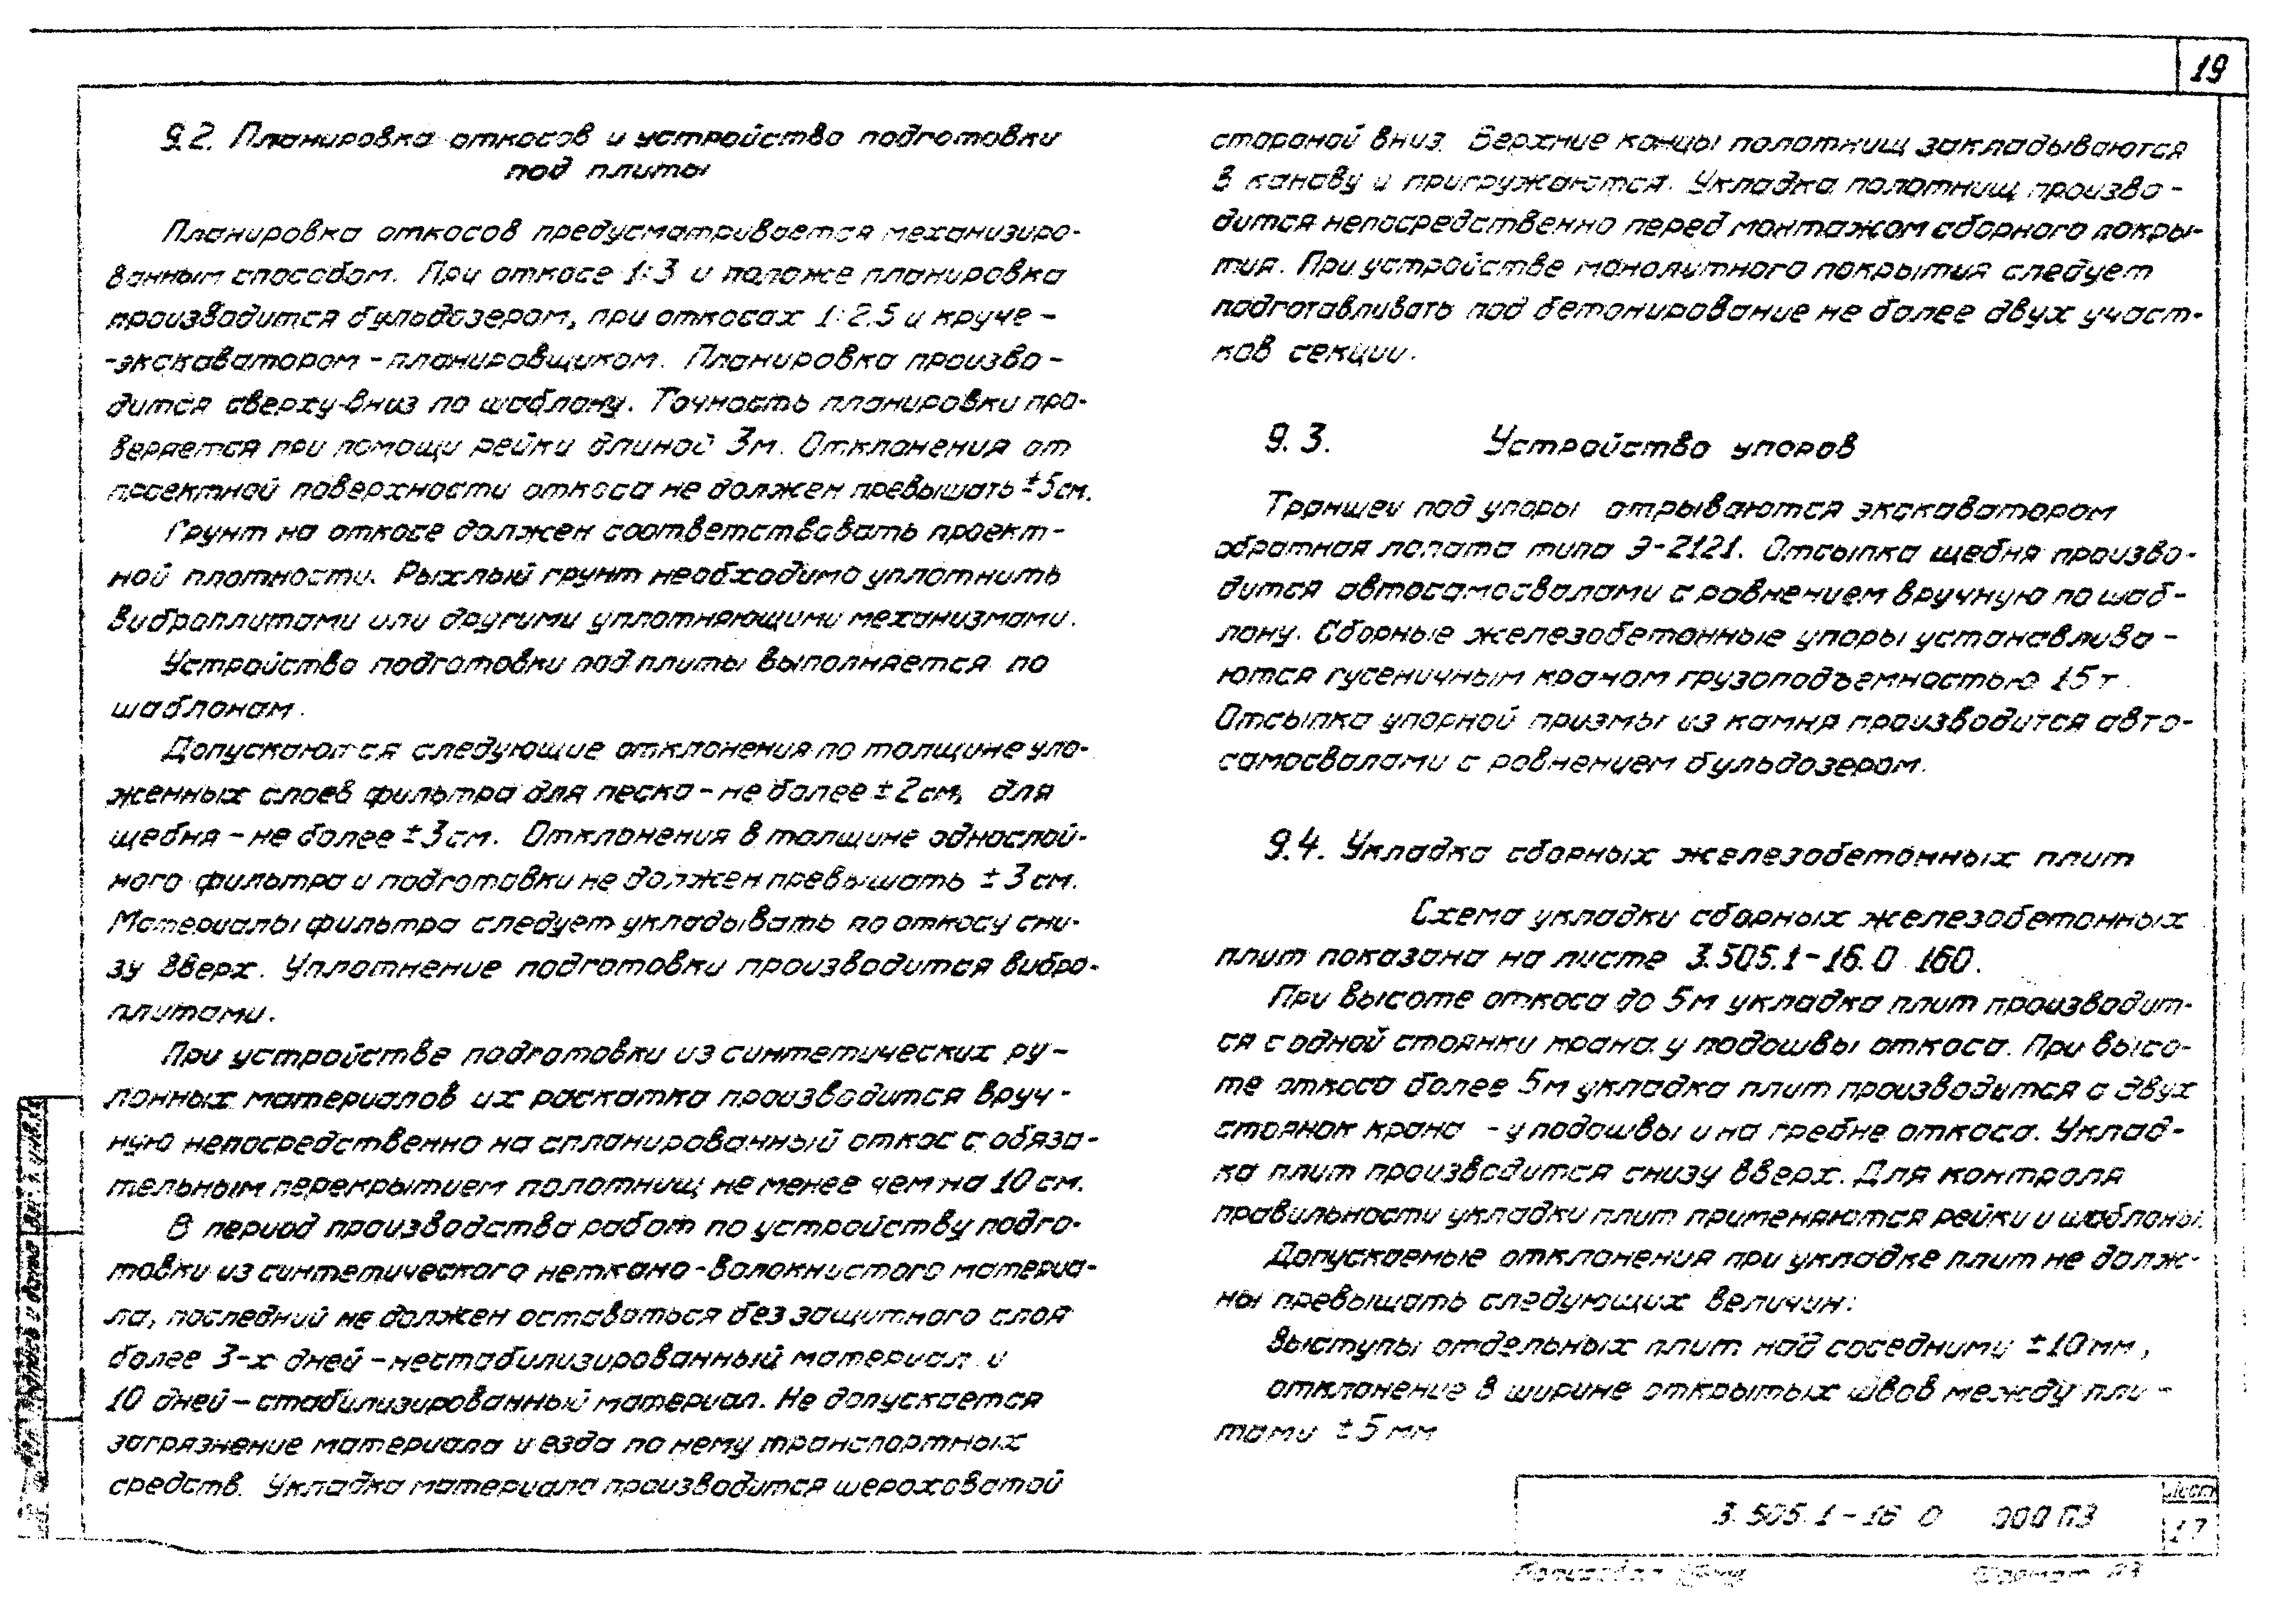 19
9.2. Планировка откосов и устройство подготовки
под плиты
Планировка откосов предусматривается механизиро-
ванным способом. При откосе 1:3 и положе планировка
производится бульдозером, при откосах 1:2.5 и круче -
-экскаватором - планировщиком. Планировка произво-
дится сверху-вниз по шаблону. Точность планировки про-
веряется при помощи рейки длиной 3м. Отклонения от
проектной поверхности откоса не должен превышать ±5см.
Грунт на откосе должен соответствовать проект-
ной плотности. Рыхлый грунт необходимо уплотнить
виброплитами или другими уплотняющими механизмами.
Устройство подготовки под плиты выполняется по
шаблонам.
Допускаются следующие отклонения по толщине уло-
женных слоев фильтра для песка - не более ±2см, для
щебня - не более ±3см. Отклонения в толщине однослой-
ного фильтра и подготовки не должен превышать ±3см.
Материалы фильтра следует укладывать по откосу сни-
зу вверх. Уплотнение подготовки производится вибро-
плитами.
При устройстве подготовки из синтетических ру-
лонных материалов их раскатка производится вруч-
ную непосредственно на спланированный откос с обяза-
тельным перекрытием полотнищ не менее чем на 10 см.
В период производства работ по устройству подго-
товки из синтетического неткано-волокнистого материа-
ла, последний не должен оставаться без защитного слоя
более 3-х дней - нестабилизированный материал и
10 дней - стабилизированный материал. Не допускается
загрязнение материала и езда по нему транспортных
средств. Укладка материала производится шероховатой
стороной вниз. Верхние концы полотнищ закладываются
в канаву и пригружаются. Укладка полотнищ произво-
дится непосредственно перед монтажом сборного покры-
тия. При устройстве монолитного покрытия следует
подготавливать под бетонирование не более двух участ-
ков секции.
9.3. Устройство упоров
Траншеи под упоры отрываются экскаватором
обратная лопата типа Э-2121. Отсыпка щебня произво-
дится автосамосвалами с ровнением вручную по шаб-
лону. Сборные железобетонные упоры устанавлива-
ются гусеничным краном грузоподъемностью 15т.
Отсыпка упорной призмы из камня производится авто-
самосвалами с ровнением бульдозером.
9.4. Укладка сборных железобетонных плит
Схема укладки сборных железобетонных
плит показана на листе 3.505.1-16.0 160.
При высоте откоса до 5м укладка плит производит-
ся с одной стоянки крана у подошвы откоса. При высо-
те откоса более 5м укладка плит производится с двух
стоянок крана - у подошвы и на гребне откоса. Уклад-
ка плит производится снизу вверх. Для контроля
правильности укладки плит применяются рейки и шаблоны.
Допускаемые отклонения при укладке плит не долж-
ны превышать следующих величин:
выступы отдельных плит над соседними ±10мм,
отклонение в ширине открытых швов между пли-
тами ±5мм
3.505.1-16 0 000 ПЗ
Лист
17
Копировал
Формат А3
Подпись и дата